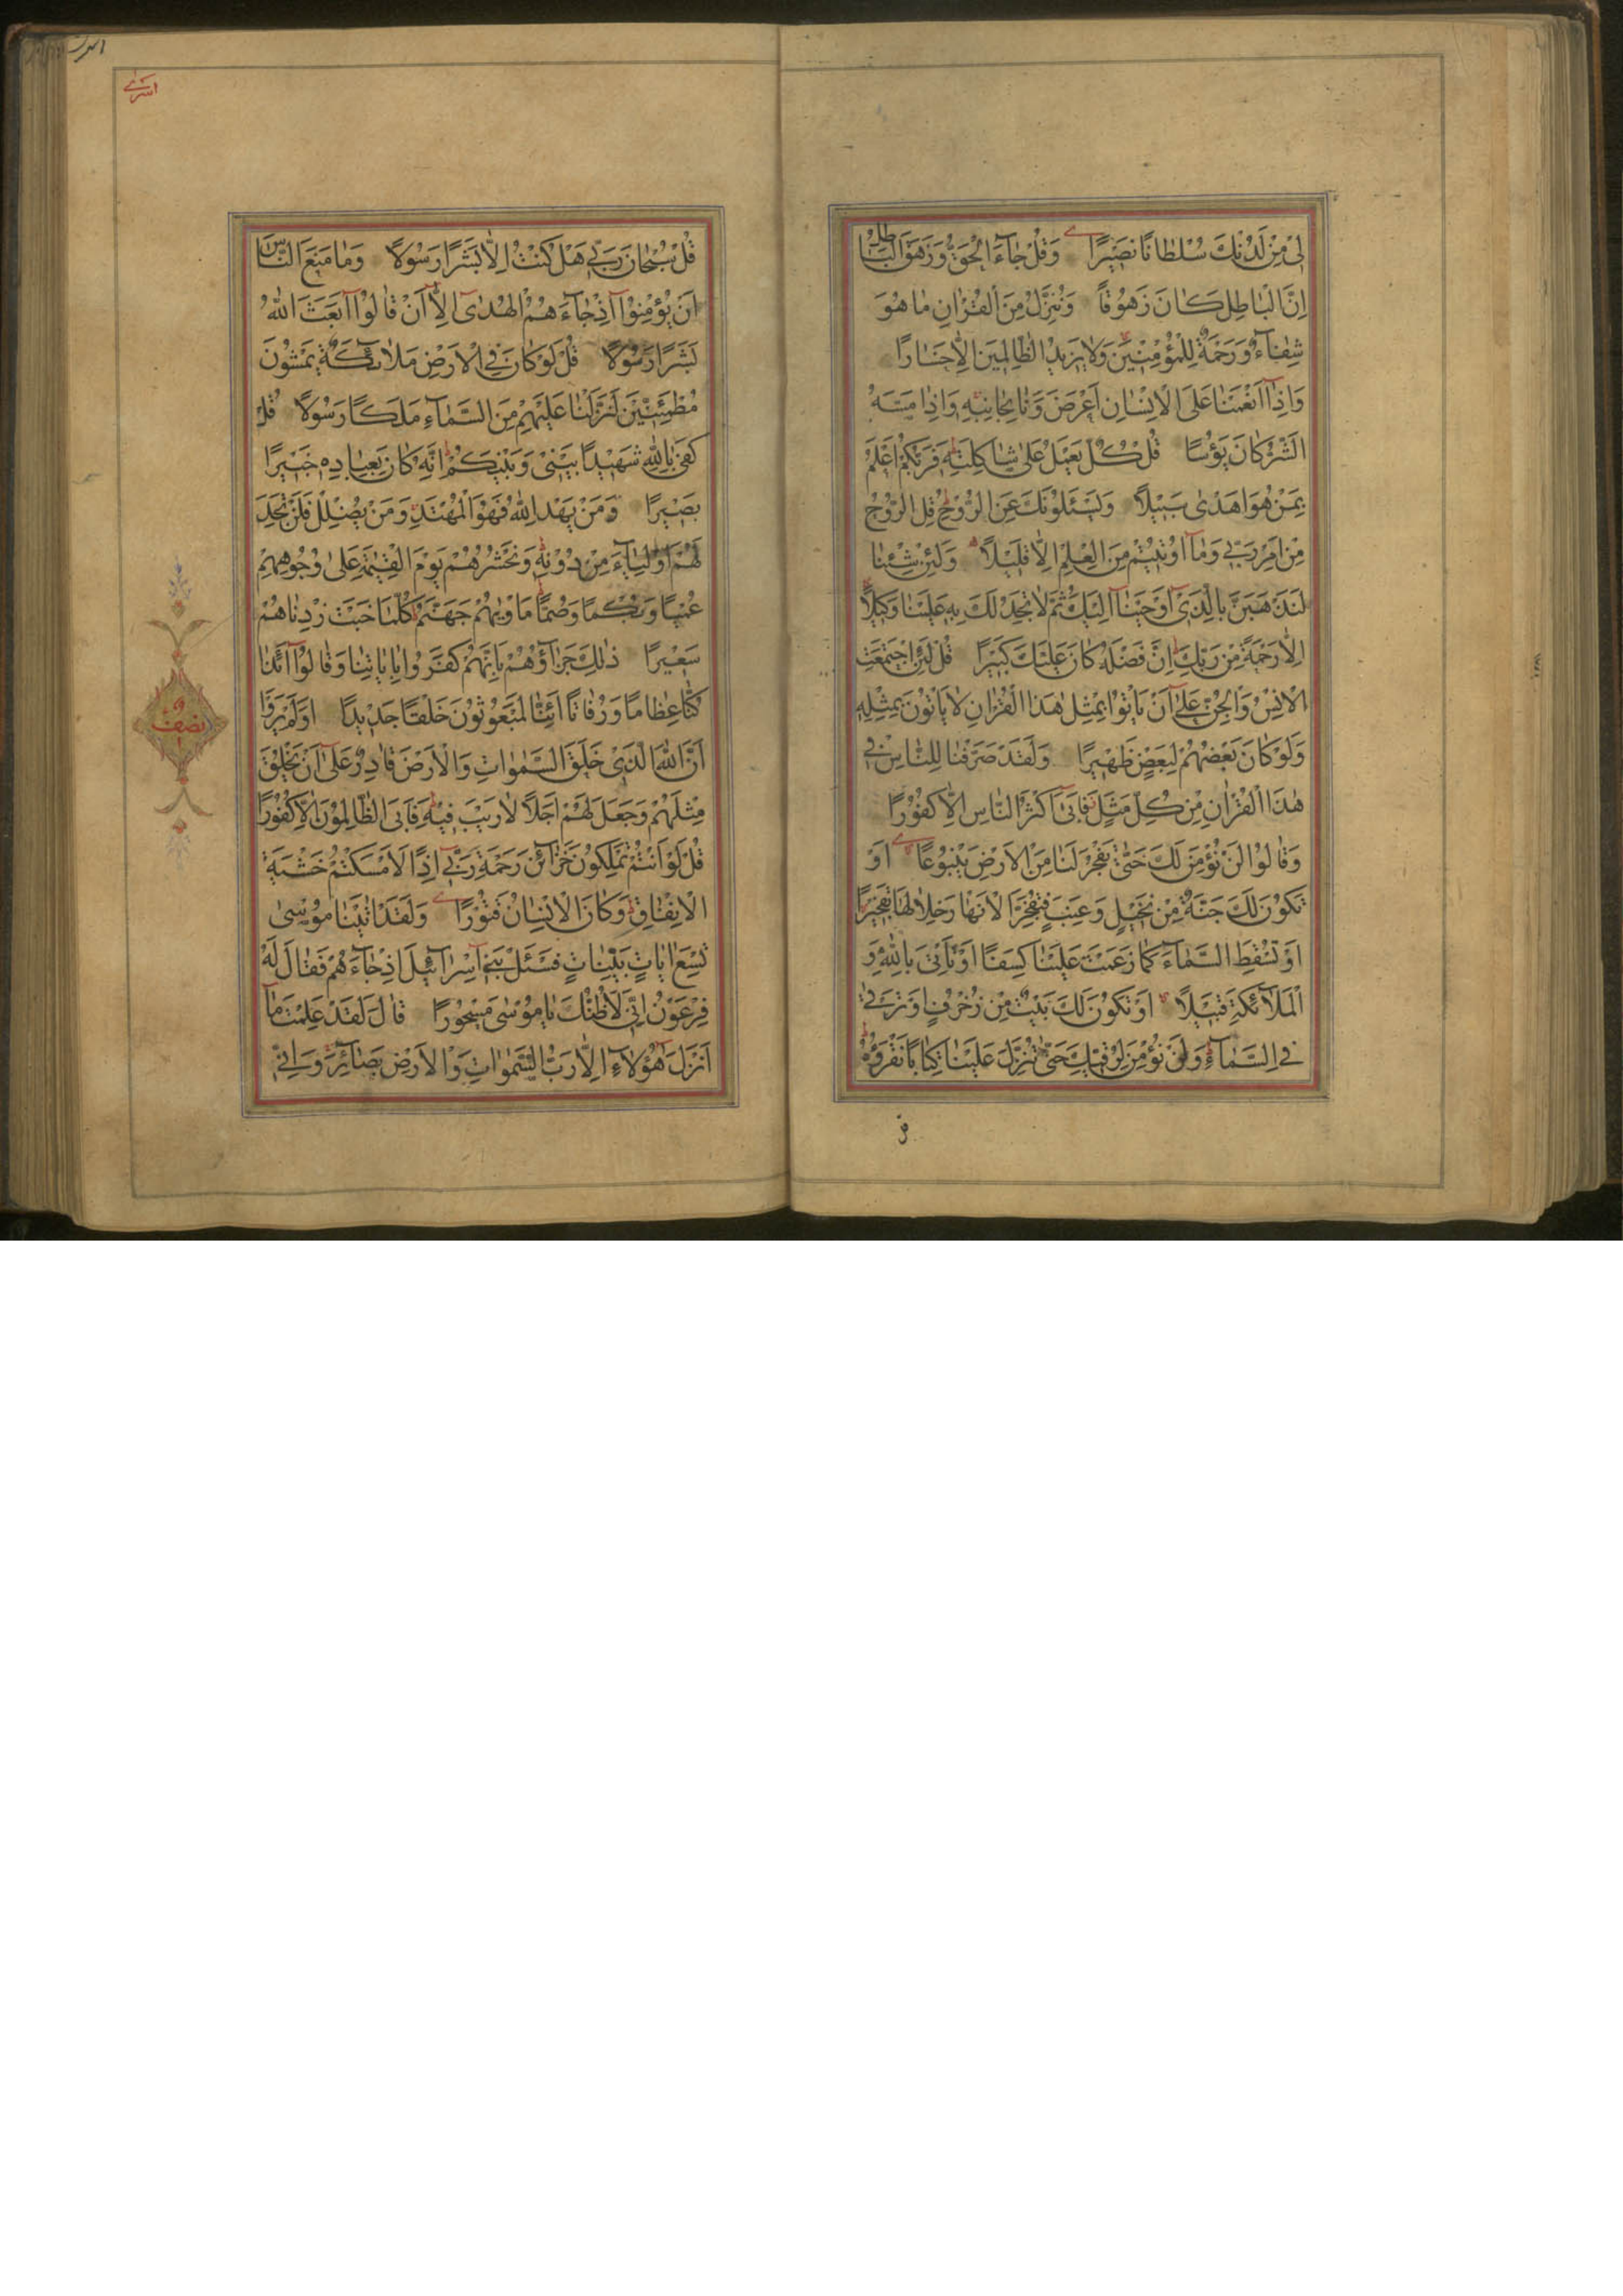 لِىْ مِنْ لَدُنْكَ سُلْطَانًا نَصِيْرًا وَقُلْ جَاءَ الْحَقُّ وَزَهَقَ الْبَاطِلُ
اِنَّ الْبَاطِلَ كَانَ زَهُوْقًا وَنُنَزِّلُ مِنَ الْقُرْاٰنِ مَا هُوَ
شِفَاءٌ وَرَحْمَةٌ لِلْمُؤْمِنِيْنَ وَلَا يَزِيْدُ الظَّالِمِيْنَ اِلَّا خَسَارًا
وَاِذَا اَنْعَمْنَا عَلَى الْاِنْسَانِ اَعْرَضَ وَنَاٰ بِجَانِبِهٖ وَاِذَا مَسَّهُ
الشَّرُّ كَانَ يَؤُسًا قُلْ كُلٌّ يَعْمَلُ عَلٰى شَاكِلَتِهٖ فَرَبُّكُمْ اَعْلَمُ
بِمَنْ هُوَ اَهْدٰى سَبِيْلًا وَيَسْـَٔلُوْنَكَ عَنِ الرُّوْحِ قُلِ الرُّوْحُ
مِنْ اَمْرِ رَبِّىْ وَمَا اُوْتِيْتُمْ مِنَ الْعِلْمِ اِلَّا قَلِيْلًا وَلَئِنْ شِئْنَا
لَنَذْهَبَنَّ بِالَّذِىْ اَوْحَيْنَا اِلَيْكَ ثُمَّ لَا تَجِدُ لَكَ بِهٖ عَلَيْنَا وَكِيْلًا
اِلَّا رَحْمَةً مِنْ رَبِّكَ اِنَّ فَضْلَهُ كَانَ عَلَيْكَ كَبِيْرًا قُلْ لَئِنِ اجْتَمَعَتِ
الْاِنْسُ وَالْجِنُّ عَلٰى اَنْ يَاْتُوْا بِمِثْلِ هٰذَا الْقُرْاٰنِ لَا يَاْتُوْنَ بِمِثْلِهٖ
وَلَوْ كَانَ بَعْضُهُمْ لِبَعْضٍ ظَهِيْرًا وَلَقَدْ صَرَّفْنَا لِلنَّاسِ فِى
هٰذَا الْقُرْاٰنِ مِنْ كُلِّ مَثَلٍ فَاَبٰى اَكْثَرُ النَّاسِ اِلَّا كُفُوْرًا
وَقَالُوْا لَنْ نُؤْمِنَ لَكَ حَتّٰى تَفْجُرَ لَنَا مِنَ الْاَرْضِ يَنْبُوْعًا اَوْ
تَكُوْنَ لَكَ جَنَّةٌ مِنْ نَخِيْلٍ وَعِنَبٍ فَتُفَجِّرَ الْاَنْهَارَ خِلَالَهَا تَفْجِيْرًا
اَوْ تُسْقِطَ السَّمَاءَ كَمَا زَعَمْتَ عَلَيْنَا كِسَفًا اَوْ تَاْتِىَ بِاللّٰهِ وَ
الْمَلَائِكَةِ قَبِيْلًا اَوْ يَكُوْنَ لَكَ بَيْتٌ مِنْ زُخْرُفٍ اَوْ تَرْقٰى
فِى السَّمَاءِ وَلَنْ نُؤْمِنَ لِرُقِيِّكَ حَتّٰى تُنَزِّلَ عَلَيْنَا كِتَابًا نَقْرَؤُهُ
اسرى
قُلْ سُبْحَانَ رَبِّىْ هَلْ كُنْتُ اِلَّا بَشَرًا رَسُوْلًا وَمَا مَنَعَ النَّاسَ
اَنْ يُؤْمِنُوْا اِذْ جَاءَهُمُ الْهُدٰى اِلَّا اَنْ قَالُوْا اَبَعَثَ اللّٰهُ
بَشَرًا رَسُوْلًا قُلْ لَوْ كَانَ فِى الْاَرْضِ مَلَائِكَةٌ يَمْشُوْنَ
مُطْمَئِنِّيْنَ لَنَزَّلْنَا عَلَيْهِمْ مِنَ السَّمَاءِ مَلَكًا رَسُوْلًا قُلْ
كَفٰى بِاللّٰهِ شَهِيْدًا بَيْنِىْ وَبَيْنَكُمْ اِنَّهُ كَانَ بِعِبَادِهٖ خَبِيْرًا
بَصِيْرًا وَمَنْ يَهْدِ اللّٰهُ فَهُوَ الْمُهْتَدِ وَمَنْ يُضْلِلْ فَلَنْ تَجِدَ
لَهُمْ اَوْلِيَاءَ مِنْ دُوْنِهٖ وَنَحْشُرُهُمْ يَوْمَ الْقِيٰمَةِ عَلٰى وُجُوْهِهِمْ
عُمْيًا وَبُكْمًا وَصُمًّا مَاْوٰيهُمْ جَهَنَّمُ كُلَّمَا خَبَتْ زِدْنَاهُمْ
سَعِيْرًا ذٰلِكَ جَزَاؤُهُمْ بِاَنَّهُمْ كَفَرُوْا بِاٰيَاتِنَا وَقَالُوْا اَئِذَا
كُنَّا عِظَامًا وَرُفَاتًا اَئِنَّا لَمَبْعُوْثُوْنَ خَلْقًا جَدِيْدًا اَوَلَمْ يَرَوْا
اَنَّ اللّٰهَ الَّذِىْ خَلَقَ السَّمٰوَاتِ وَالْاَرْضَ قَادِرٌ عَلٰى اَنْ يَخْلُقَ
مِثْلَهُمْ وَجَعَلَ لَهُمْ اَجَلًا لَا رَيْبَ فِيْهِ فَاَبَى الظَّالِمُوْنَ اِلَّا كُفُوْرًا
قُلْ لَوْ اَنْتُمْ تَمْلِكُوْنَ خَزَائِنَ رَحْمَةِ رَبِّىْ اِذًا لَاَمْسَكْتُمْ خَشْيَةَ
الْاِنْفَاقِ وَكَانَ الْاِنْسَانُ قَتُوْرًا وَلَقَدْ اٰتَيْنَا مُوْسٰى
تِسْعَ اٰيَاتٍ بَيِّنَاتٍ فَسْـَٔلْ بَنِىْ اِسْرَائِيْلَ اِذْ جَاءَهُمْ فَقَالَ لَهُ
فِرْعَوْنُ اِنِّىْ لَاَظُنُّكَ يَا مُوْسٰى مَسْحُوْرًا قَالَ لَقَدْ عَلِمْتَ مَا
اَنْزَلَ هٰؤُلَاءِ اِلَّا رَبُّ السَّمٰوَاتِ وَالْاَرْضِ بَصَائِرَ وَاِنِّىْ
نصف